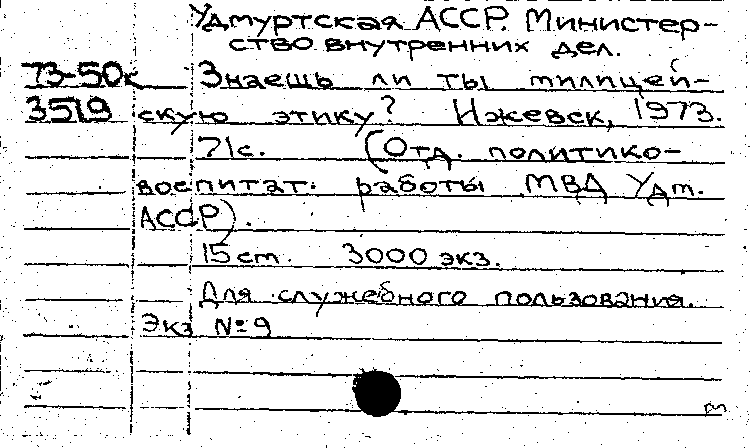 Удмуртская АССР. Министер-
ство внутренних дел.
73-50с Знаешь ли ты милицей-
3519 скую этику? Ижевск, 1973.
71с. (Отд. политико-
воспитат. работы МВД Удм.
АССР).
15 ст. 3000 экз.
Для служебного пользования.
Экз №9